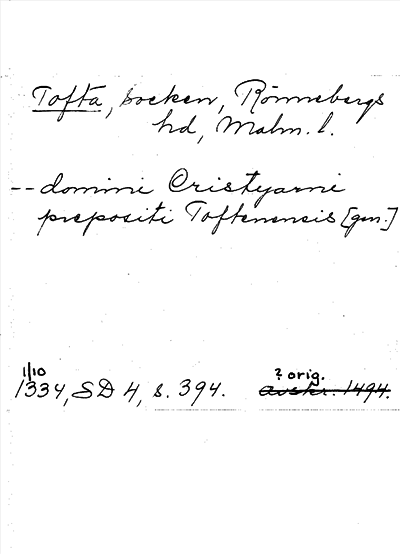 Tofta, socken, Rönnebergs
hd, Malm. l.
-- domini Cristyarni
prepositi Toftenensis [gen.]
1/10 ? orig.
1334, SD 4, s. 394. avskr. 1494.